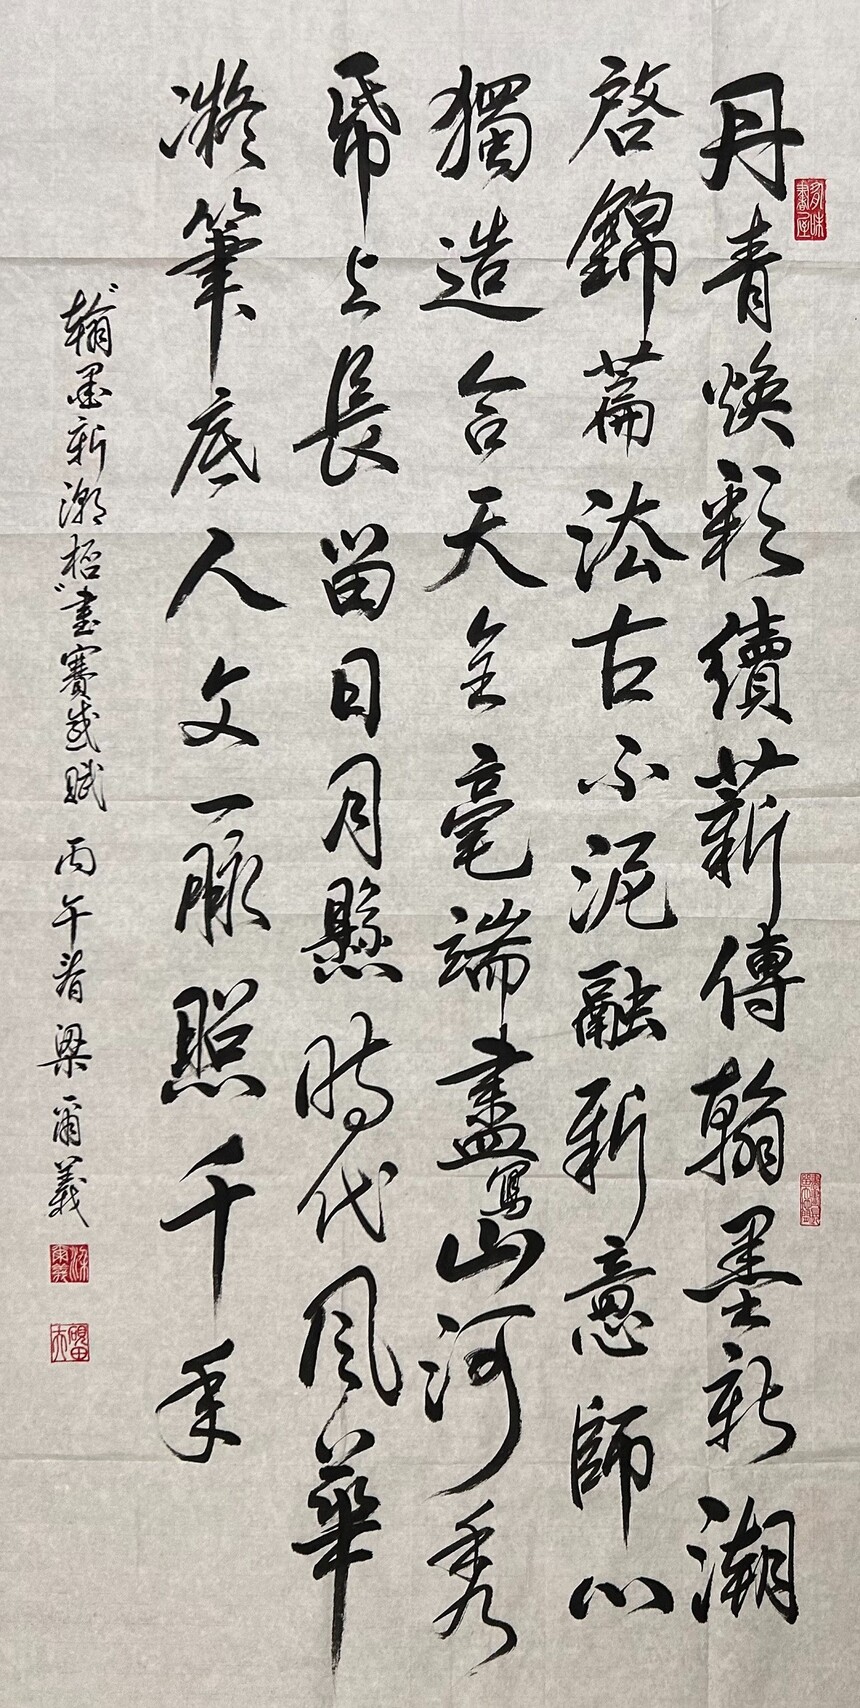 丹青煥彩續薪傳翰墨新潮
啓錦篇法古不泥融新意師心
獨造合天全毫端盡寫山河秀
帋上長留日月懸時代風華
凝筆底人文一脈照千年
"翰墨新潮杯"書賽感賦 丙午春 梁爾義